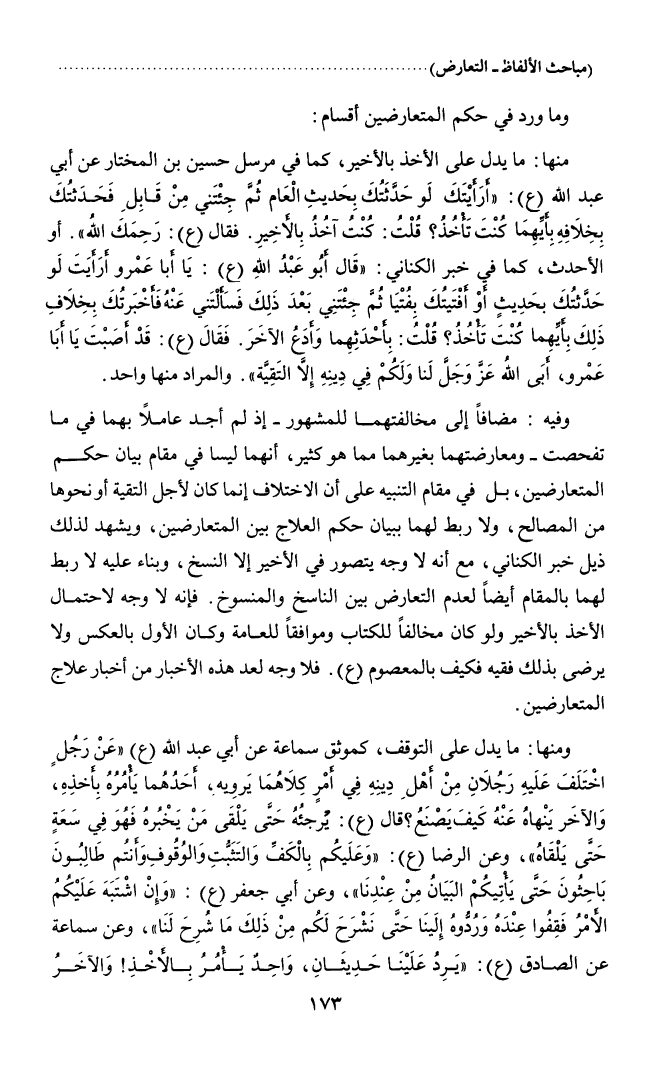 (مباحث الألفاظ ـ التعارض) ........................................................
وما ورد في حكم المتعارضين أقسام:
منها: ما يدل على الأخذ بالأخير، كما في مرسل حسين بن المختار عن أبي
عبد الله (ع): «أَرَأَيْتَكَ لَو حَدَّثتُكَ بِحَديثٍ العَام ثُمَّ جِئْتَني مِنْ قَـابِل ٍ فَحَدثتُكَ
بِخِلافِهِ بِأَيِّهِمَا كُنْتَ تَأْخُذُ؟ قُلْتُ: كُنْتُ آخُذُ بِالأَخِيرِ. فقال (ع): رَحِمَكَ اللهُ». أو
الأحدث، كما في خبر الكناني: «قَال أَبُو عَبْدُ اللهِ (ع) : يَا أَبا عَمْرو أَرَأَيَتَ لَو
حَدَّثتُكَ بحَديثٍ أَوْ أَفْتَيتُكَ بِفُتْيَا ثُمَّ جِئتَنِي بَعْدَ ذَلِكَ فَسَأَلْتَني عَنْهُ فَأَخْبَرتُكَ بِخِلافِ
ذَلِكَ بِأَيِّهِما كُنْتَ تَأْخُذُ؟ قُلْتُ: بِأَحْدَثِهِما وَأَدَعُ الآخَرَ. فَقَالَ (ع): قَدْ أَصَبْتَ يَا أَبَا
عَمْرو، أَبَى اللهُ عَزَّ وَجَلَّ لَنا وَلَكُمْ فِي دِينِهِ إِلَّا التَقِيَّة». والمراد منها واحد.
وفيه : مضافاً إلى مخالفتهمـا للمشهور ـ إذ لم أجـد عاملًا بهما في مـا
تفحصت ـ ومعارضتهما بغيرهما مما هو كثير، أنهما ليسا في مقام بيان حكـم
المتعارضين، بـل في مقام التنبيه على أن الاختلاف إنما كان لأجل التقية أو نحوها
من المصالح، ولا ربط لهما ببيان حكم العلاج بين المتعارضين، ويشهد لذلك
ذيل خبر الكناني، مع أنه لا وجه يتصور في الأخير إلا النسخ، وبناء عليه لا ربط
لهما بالمقام أيضاً لعدم التعارض بين الناسخ والمنسوخ. فإنه لا وجه لاحتمـال
الأخذ بالأخير ولو كان مخالفاً للكتاب وموافقاً للعامة وكـان الأول بالعكس ولا
يرضى بذلك فقيه فكيف بالمعصوم (ع). فلا وجه لعد هذه الأخبار من أخبار علاج
المتعارضين.
ومنها: ما يدل على التوقف، كموثق سماعة عن أبي عبد الله (ع) «عَنْ رَجُل ٍ
اخْتَلَفَ عَلَيهِ رَجُلَانِ مِنْ أَهْل ِ دِينِهِ فِي أَمْرٍ كِلَاهُمَا يَروِيهِ، أَحَدُهُما يَأْمُرُهُ بِأَخذِهِ،
وَالآخَر يَنْهاهُ عَنْهُ كَيفَ يَصْنَعُ؟ قال (ع): يُرجِئُهُ حَتَّى يَلْقَى مَنْ يَخْبُرهُ فَهُوَ فِي سَعَةٍ
حَتَّى يَلْقَاهُ»، وعن الرضا (ع): «وَعَلَيكُم بِالْكَفِّ وَالتَثَبُّتِ وَالوُقُوفِ وَأَنتُم طَالِبُونَ
بَاحِثُونَ حَتَّى يَأْتِيكُمْ البَيَانُ مِنْ عِنْدِنَا»، وعن أبي جعفر (ع) : «وَإِنْ اشْتَبَهَ عَلَيْكُمُ
الأَمْرُ فَقِفُوا عِنْدَهُ وَرُدُّوهُ إِلَينَا حَتَّى نَشْرَحَ لَكُم مِنْ ذَلِكَ مَا شُرِحَ لَنَا»، وعن سماعة
عن الصـادق (ع): «يَـرِدُ عَلَيْنَـا حَدِيثَـانِ، وَاحِـدٌ يَـأْمُـرُ بِـالأَخْـذِ! وَالآخَـرُ
١٧٣